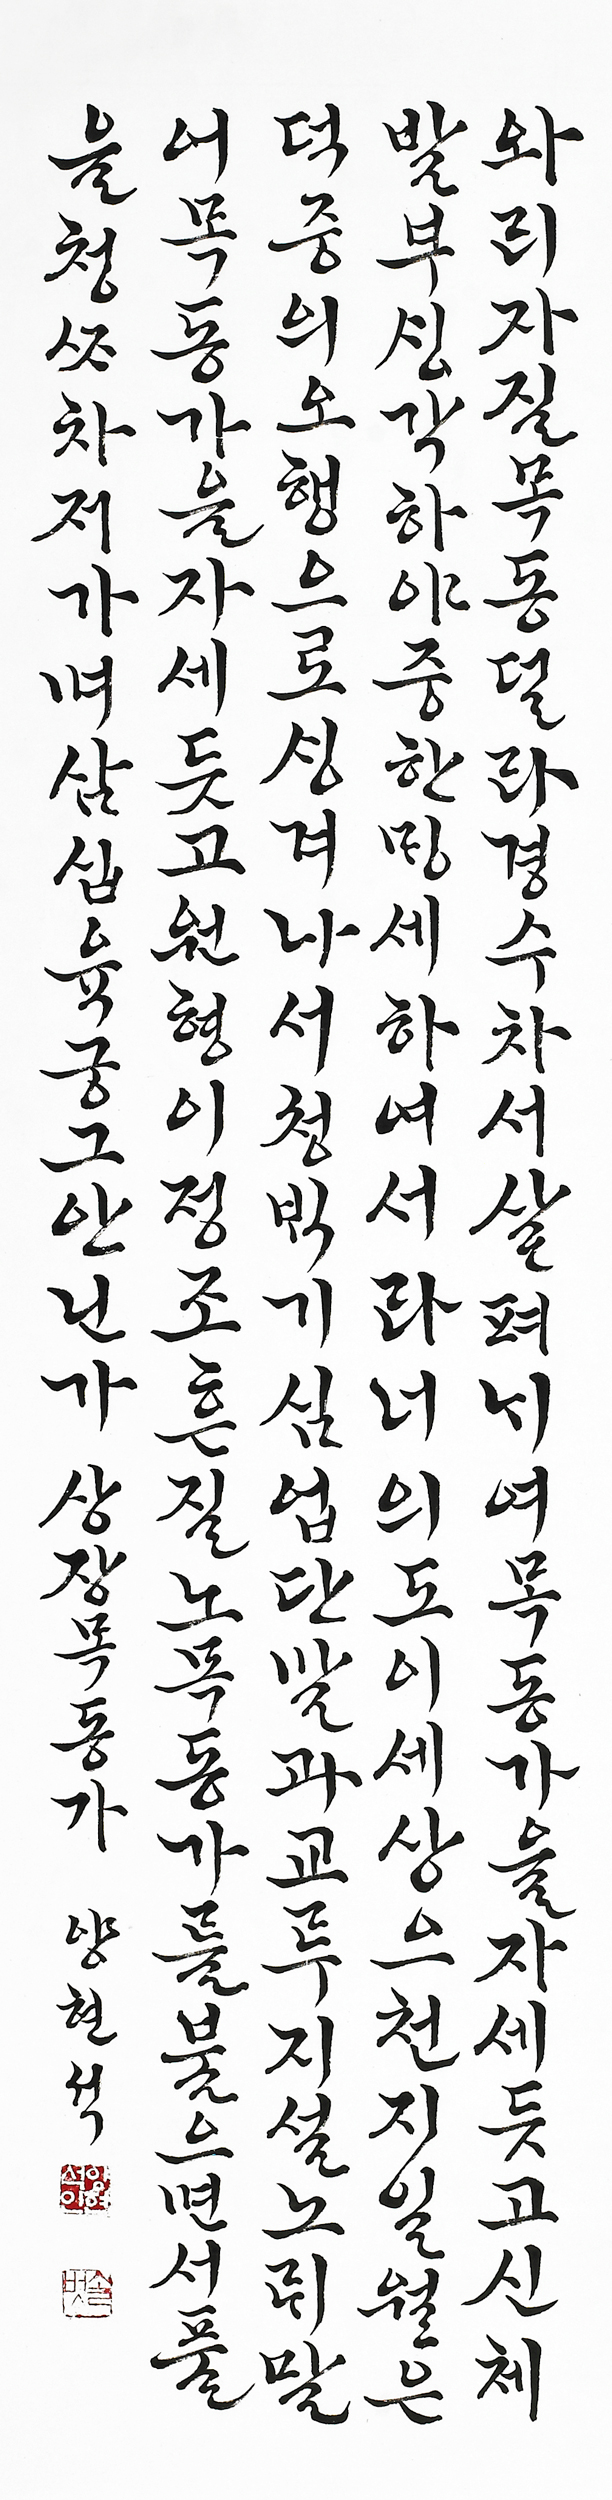 와리자질목동덜라경수차서살펴니여목동가늘자세듯고신체
발부심각하야중한밍세하여서라너의도이세상으천지일월은
덕중의오행으로싱겨나서청박기심업단말과교두지설노릐말
어목동가늘자세듯고원형이정조흔질노목동가를불으면서풀
늘청쏫차저가며삼십육궁그안닌가 상장목동가 양현석